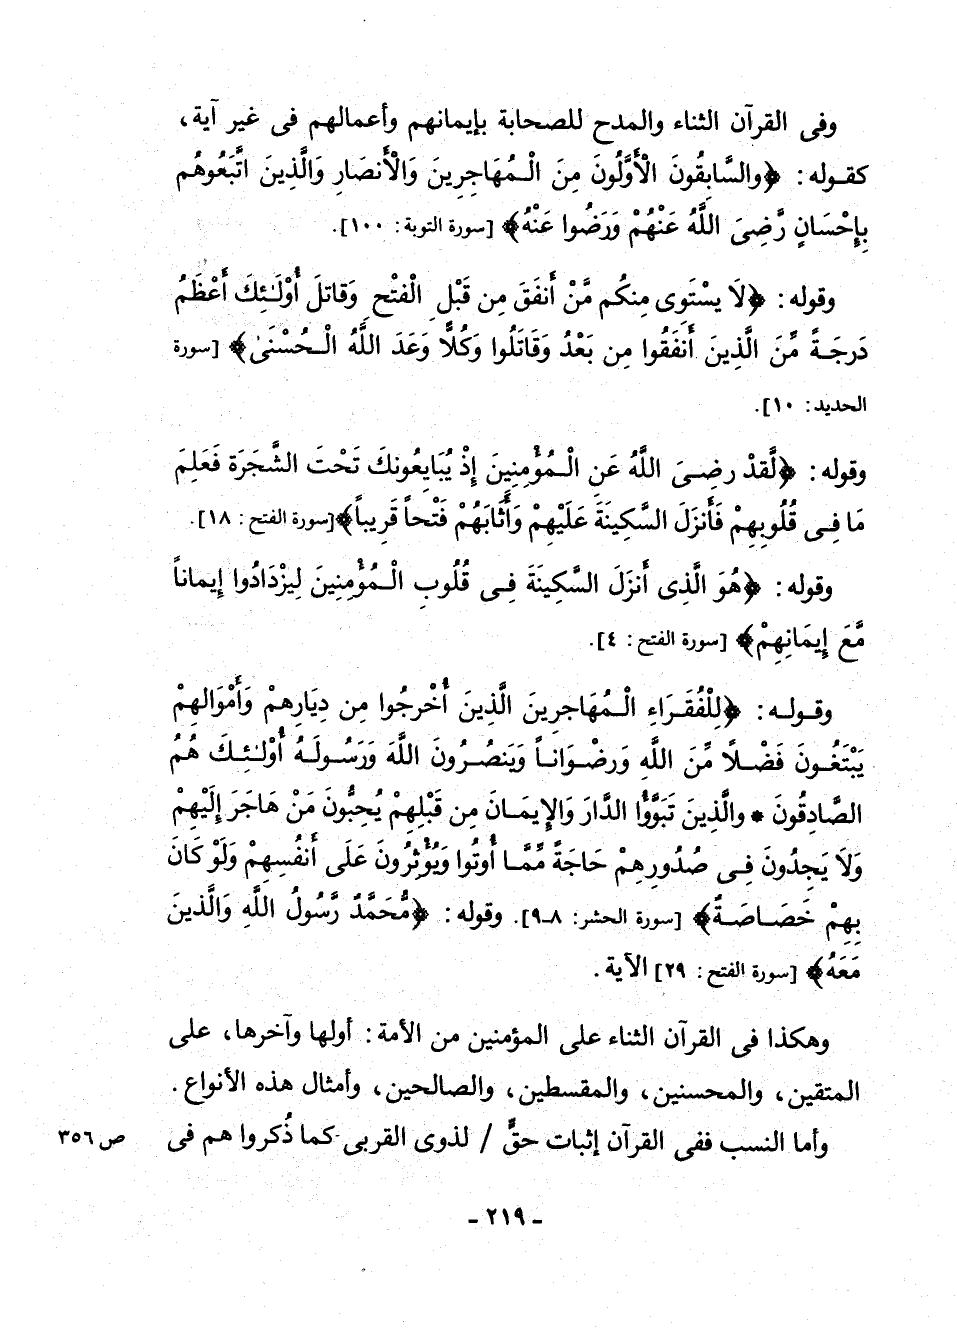 وفى القرآن الثناء والمدح للصحابة بإيمانهم وأعمالهم فى غير آية،
كقـوله: ﴿والسَّابِقُونَ الْأَوَّلُونَ مِنَ الْـمُهَاجِرِينَ وَالْأَنصَارِ وَالَّذِينَ اتَّبَعُوهُم
بِإِحْسَانٍ رَّضِىَ اللَّهُ عَنْهُمْ وَرَضُوا عَنْهُ﴾ [سورة التوبة: ١٠٠].
وقوله: ﴿لَا يسْتَوِى مِنكُم مَّنْ أَنفَقَ مِن قَبْلِ الْفتْحِ وَقاتلَ أُوْلَـٰئِكَ أَعْظَمُ
دَرجَـةً مِّنَ الَّذِينَ أَنفَقُوا مِن بَعْدُ وَقَاتَلُوا وَكُلًّا وَعَدَ اللَّهُ الْـحُسْنَىٰ﴾ [سورة
الحديد: ١٠].
وقوله: ﴿لَّقدْ رضِـىَ اللَّهُ عَنِ الْـمُؤْمِنِينَ إِذْ يُبَايِعُونكَ تَحْتَ الشَّجَرَة فَعَلِمَ
مَا فِـى قُلُوبِهِمْ فَأَنزَلَ السَّكِينَةَ عَلَيْهِمْ وَأَثَابَهُمْ فَتْحاً قَرِيباً﴾[سورة الفتح: ١٨].
وقوله: ﴿هُوَ الَّذِى أَنزَلَ السَّكِينَةَ فِـى قُلُوبِ الْـمُؤْمِنِينَ لِيزْدَادُوا إِيماناً
مَّعَ إِيمَانِهِمْ﴾ [سورة الفتح: ٤].
وقـولـه: ﴿لِلْفُقَـرَاءِ الْـمُهَاجرِينَ الَّذِينَ أُخْرجُوا مِن دِيَارِهمْ وَأَمْوَالهِمْ
يَبْتَغُـونَ فَضْـلًا مِّنَ اللَّهِ وَرضْـوَانـاً وَيَنصُـرُونَ اللَّهَ وَرَسُـولَـهُ أُوْلَـٰئِـكَ هُمُ
الصَّادِقُونَ * والَّذِينَ تَبَوَّؤُا الدَّارَ وَالإِيمَـانَ مِن قَبْلِهِمْ يُحِبُّونَ مَنْ هَاجَرَ إِلَيْهِمْ
وَلَا يَجِدُونَ فِـى صُدُورِهِمْ حَاجَةً مِّمَّـا أُوتُوا وَيُؤْثِرُونَ عَلَى أَنفُسِهِمْ وَلَوْ كَانَ
بِهِمْ خَصَـاصَـةٌ﴾ [سورة الحشر: ٨ـ٩]. وقوله: ﴿مُّحَمَّدٌ رَّسُولُ اللَّهِ وَالَّذينَ
مَعَهُ﴾ [سورة الفتح: ٢٩] الآية.
وهكذا فى القرآن الثناء على المؤمنين من الأمة: أولها وآخرها، على
المتقين، والمحسنين، والمقسطين، والصالحين، وأمثال هذه الأنواع.
وأما النسب ففى القرآن إثبات حقٍّ / لذوى القربى كما ذُكروا هم فى
ص ٣٥٦
- ٢١٩ -